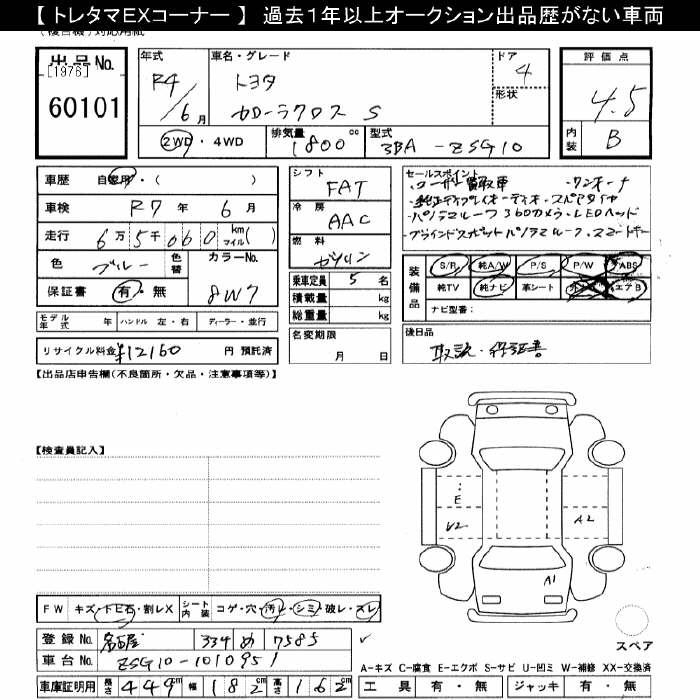 【 トレタマEXコーナー 】 過去1年以上オークション出品歴がない車両
出品No.
[1976]
60101
年式
R4/6月
車名・グレード
トヨタ
カローラクロス S
ドア
4
形状
2WD・4WD
排気量 1800cc
型式 3BA-ZSG10
評価点
4.5
内装 B
車歴 自家用・( )
車検 R7年 6月
走行 6万5千060 km マイル( )
色 ブルー
色替
カラーNo. 8W7
保証書 有・無
シフト FAT
冷房 AAC
燃料 ガソリン
乗車定員 5名
積載量 kg
総重量 kg
名変期限
月 日
セールスポイント
・ユーザー買取車 ・ワンオーナ
・純正ディスプレイオーディオ・スペアタイヤ
・パノラマルーフ360カメラ・LEDヘッド
・ブラインドスポットパノラマルーフ・スマートキー
装備品
S/R 純A/W P/S P/W ABS
純TV 純ナビ 革シート エアB
ナビ型番:
後日品
取説・保証書
モデル年式 年 ハンドル 左・右 ディーラー・並行
リサイクル料金 ¥12160 円 預託済
【出品店申告欄(不良箇所・欠品・注意事項等)】
【検査員記入】
E
U2
A2
A1
FW キズ・トビ石・割レX シート内装 コゲ・穴・汚レ・シミ・破レ・スレ
登録No. 名古屋 334 め 7585
車台No. ZSG10-1010951
車庫証明用 長さ 449cm 幅 182cm 高さ 162cm
スペア
A-キズ C-腐食 E-エクボ S-サビ U-凹ミ W-補修 XX-交換済
工具 有・無 ジャッキ 有・無